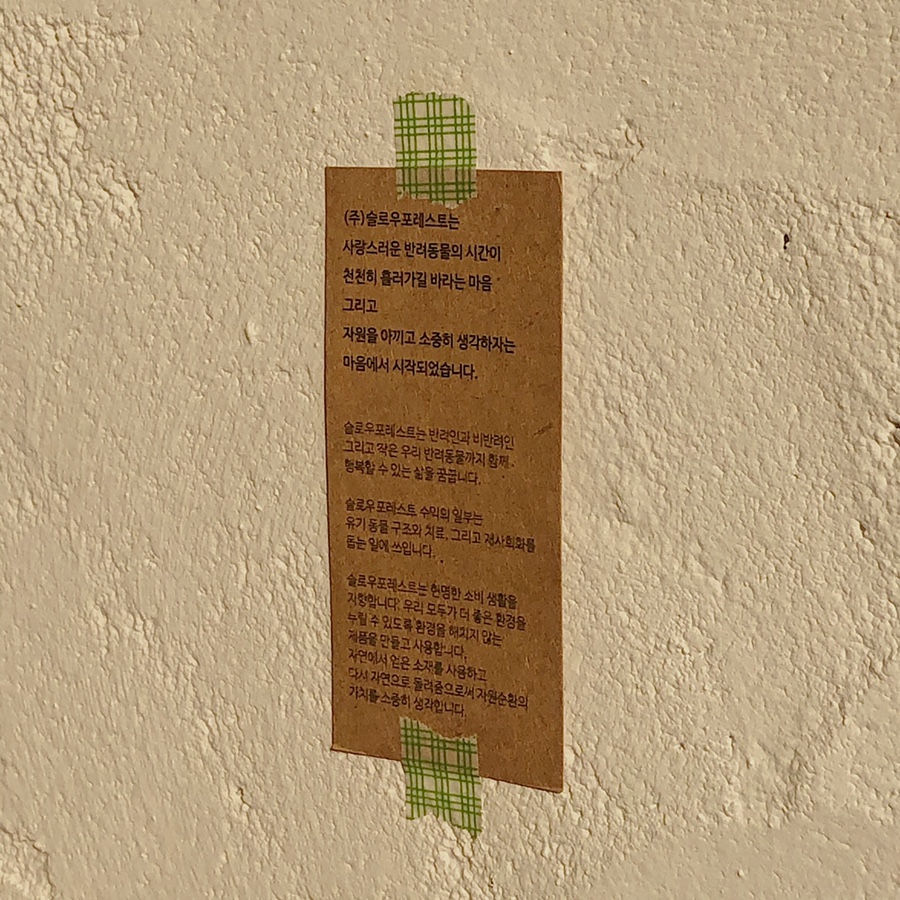 (주)슬로우포레스트는
사랑스러운 반려동물의 시간이
천천히 흘러가길 바라는 마음
그리고
자원을 아끼고 소중히 생각하자는
마음에서 시작되었습니다.
슬로우포레스트는 반려인과 비반려인
그리고 작은 우리 반려동물까지 함께
행복할 수 있는 삶을 꿈꿉니다.
슬로우포레스트 수익의 일부는
유기 동물 구조와 치료, 그리고 재사회화를
돕는 일에 쓰입니다.
슬로우포레스트는 현명한 소비 생활을
지향합니다. 우리 모두가 더 좋은 환경을
누릴 수 있도록 환경을 해치지 않는
제품을 만들고 사용합니다.
자연에서 얻은 소재를 사용하고
다시 자연으로 돌려줌으로써 자원순환의
가치를 소중히 생각합니다.